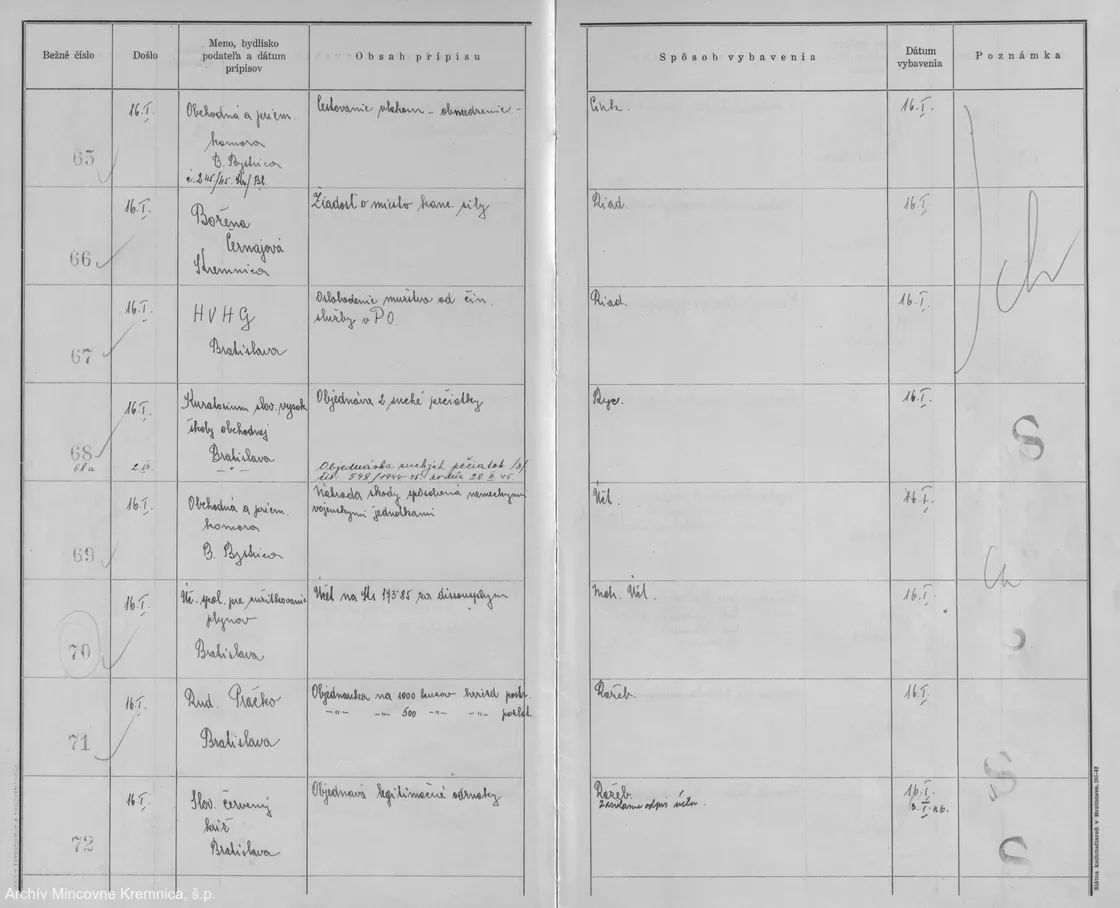 Bežné číslo
Došlo
Meno, bydlisko
podateľa a dátum
prípisov
Obsah prípisu
Spôsob vybavenia
Dátum
vybavenia
Poznámka
65
16.I.
Obchodná a priem.
komora
B. Bystrica
č. 245/45. /Bl.
Cestovanie vlakom - obmedzenie -
Cirk.
16.I.
66
16.I.
Božena
Černajová
Kremnica
Žiadosť o miesto kanc. sily
Riad.
16.I.
Ch
67
16.I.
HVHG
Bratislava
Oslobodenie mužstva od čin.
služby v PO.
Riad.
16.I.
68
68a
16.I.
Kuratorium slov. vysok.
školy obchodnej
Bratislava
- " -
Objednáva 2 suché pečiatky
Objednávka suchých pečiatok /3/
548/1944-45 zo dňa 28 45.
Ryc.
16.I.
S
69
16.I.
Obchodná a priem.
komora
B. Bystrica
Náhrada škody spôsobená nemeckými
vojenskými jednotkami
Účt.
16.I.
Ch
70
16.I.
Úč. spol. pre zužitkovanie
plynov
Bratislava
Účet na Ks 193'85 za dissousplyn
Mat. Účt.
16.I.
71
16.I.
Rud. Pračko
Bratislava
Objednavka na 1000 kusov hviezd
-"- -"- 500 -"- -"-
Razeb.
16.I.
S
72
16.I.
Slov. červený
kríž
Bratislava
Objednavá legitimačné odznaky
Razeb.
Zasielame odpis účtu.
16.I.
S
Štátna kníhtlačiareň v Bratislave.
Archív Mincovne Kremnica, š.p.